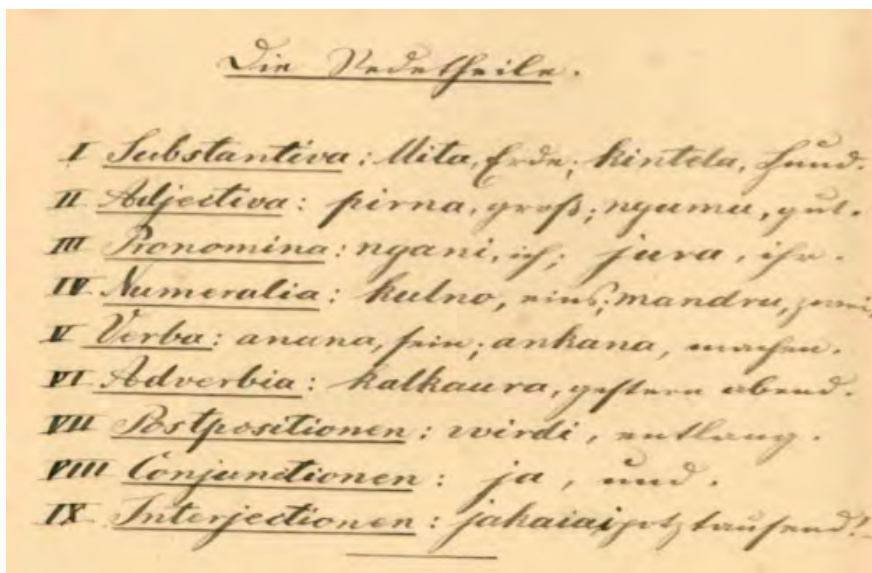 Die Redetheile.
I Substantiva: Mita, Erde; kintela, Hund.
II Adjectiva: pirna, groß; ngumu, gut.
III Pronomina: ngani, ich; jura, ihr.
IV Numeralia: kulno, eins; mandru, zwei,
V Verba: anana, sein; ankana, machen.
VI Adverbia: kalkaura, gestern abend.
VII Postpositionen: wirdi, entlang.
VIII Conjunctionen: ja, und.
IX Interjectionen: jakaiai, potztausend!